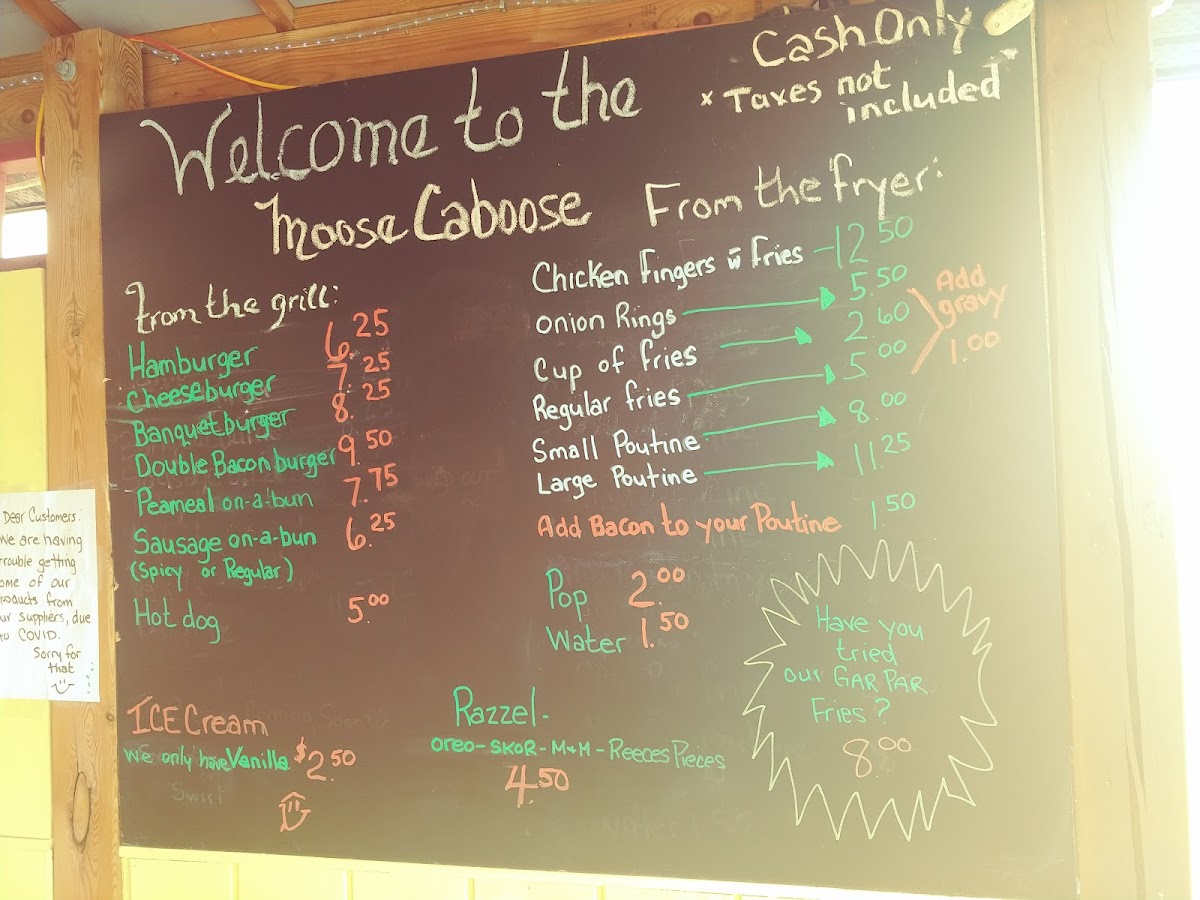 Cash Only
x Taxes not
included
Welcome to the
Moose Caboose
From the grill:
Hamburger 6.25
Cheeseburger 7.25
Banquetburger 8.25
Double Bacon burger 9.50
Peameal on-a-bun 7.75
Sausage on-a-bun 6.25
(Spicy or Regular)
Hot dog 5.00
From the fryer:
Chicken Fingers w̄ Fries - 12.50
Onion Rings 5.50
Cup of fries 2.60
Regular fries 5.00
Add
gravy
1.00
Small Poutine 8.00
Large Poutine 11.25
Add Bacon to your Poutine 1.50
Pop 2.00
Water 1.50
Have you
tried
our GAR PAR
Fries?
8.00
ICE Cream
We only have Vanilla $2.50
Swirl
Razzel-
Oreo - SKOR - M+M - Reeces Pieces
4.50
Dear Customers.
We are having
trouble getting
ome of our
roducts from
ur suppliers, due
to COVID.
Sorry for
that